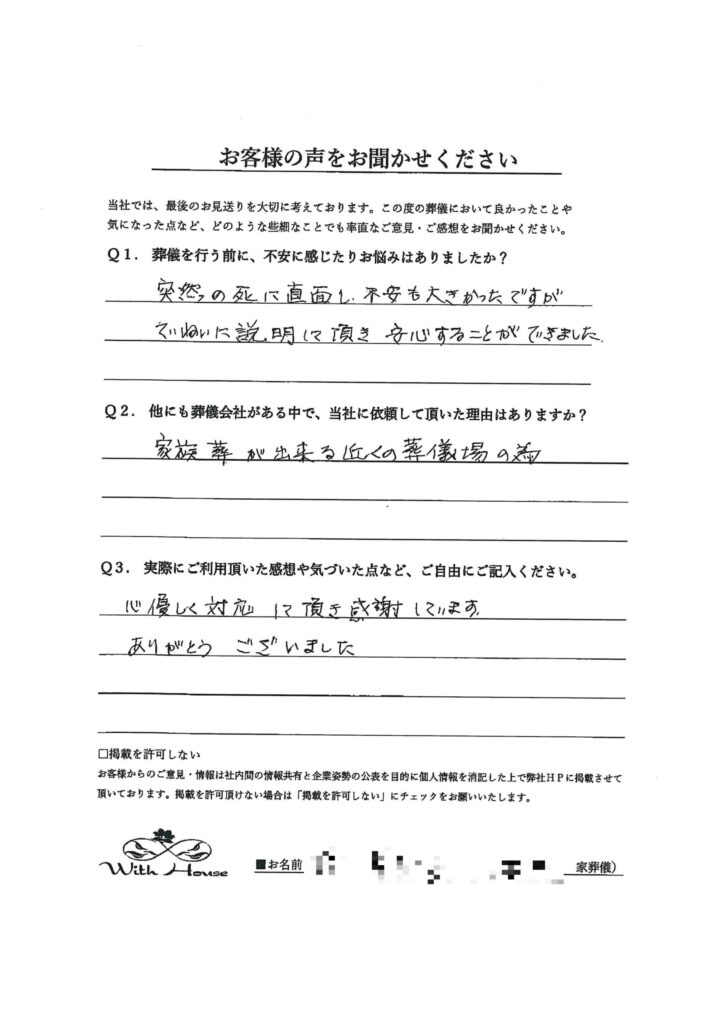 お客様の声をお聞かせください
当社では、最後のお見送りを大切に考えております。この度の葬儀において良かったことや
気になった点など、どのような些細なことでも率直なご意見・ご感想をお聞かせください。
Q1. 葬儀を行う前に、不安に感じたりお悩みはありましたか？
突然の死に直面し、不安も大きかったですが
ていねいに説明して頂き 安心することができました.
Q2. 他にも葬儀会社がある中で、当社に依頼して頂いた理由はありますか？
家族葬が出来る近くの葬儀場の為
Q3. 実際にご利用頂いた感想や気づいた点など、ご自由にご記入ください。
心優しく対応して頂き感謝しています.
ありがとう ございました
□掲載を許可しない
お客様からのご意見・情報は社内間の情報共有と企業姿勢の公表を目的に個人情報を消記した上で弊社HPに掲載させて
頂いております。掲載を許可頂けない場合は「掲載を許可しない」にチェックをお願いいたします。
With House
■お名前 家葬儀）